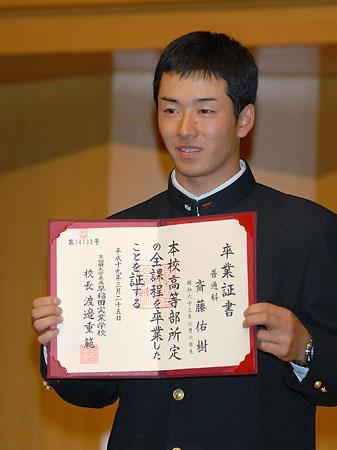 卒業証書
普通科
斎藤佑樹
昭和六十三年六月六日生
本校高等部所定
の全課程を卒業した
ことを証する
平成十九年三月二十五日
早稲田大学系属早稲田実業学校
校長渡邉重範